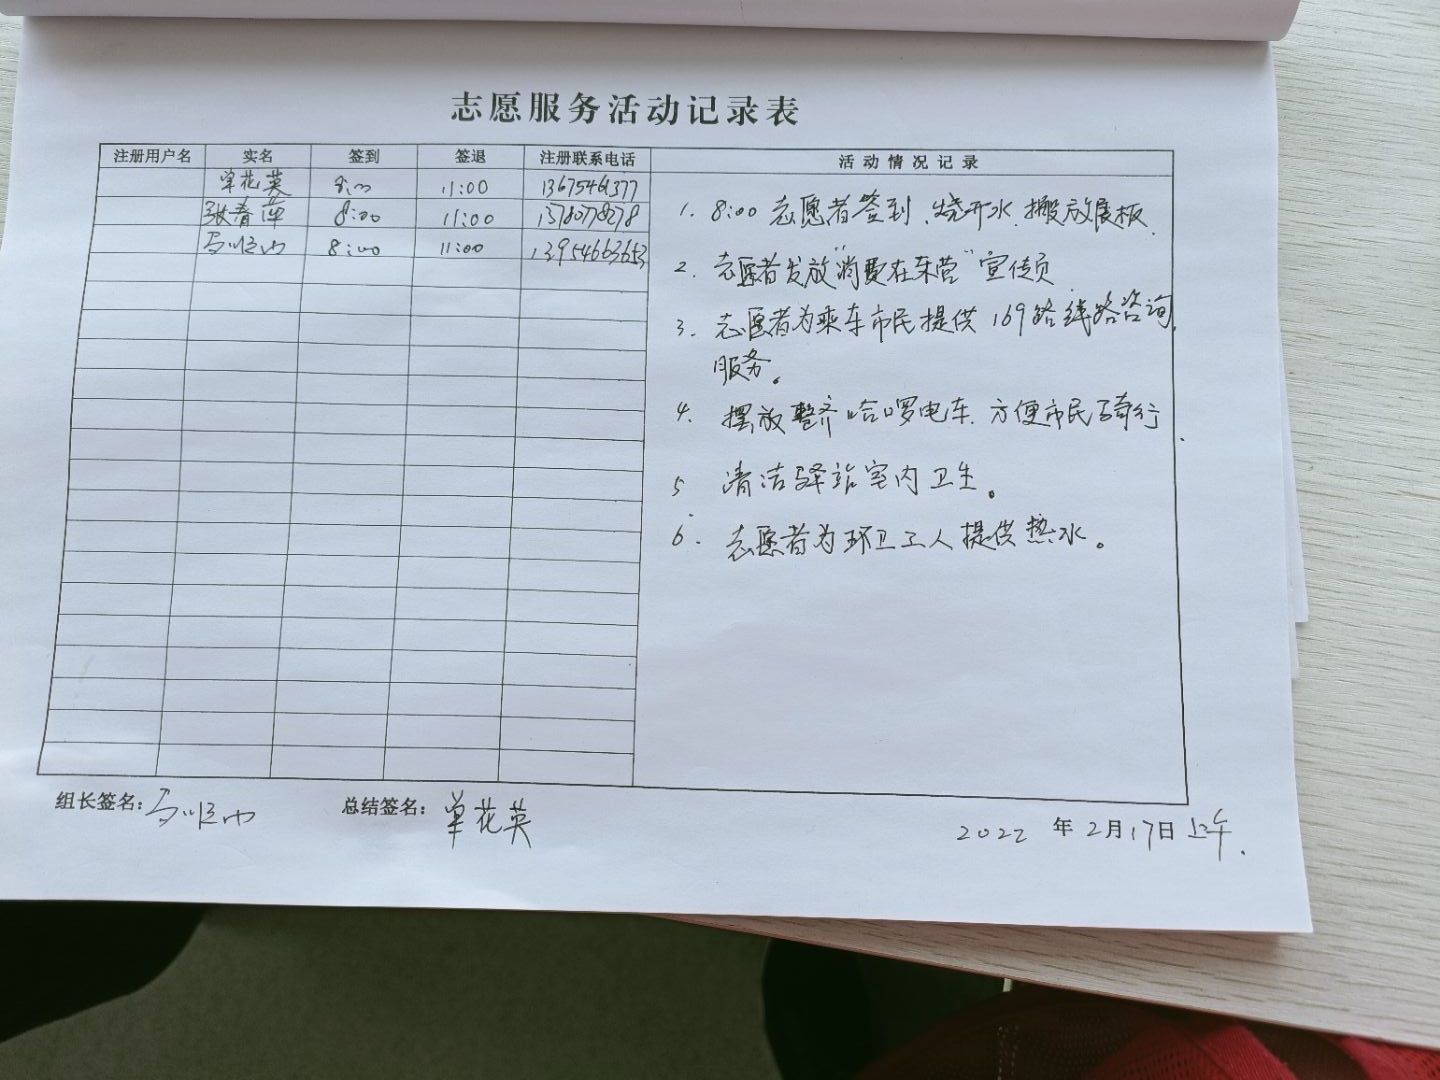 志愿服务活动记录表
注册用户名 实名 签到 签退 注册联系电话 活动情况记录
单花英 8:00 11:00 13675461377
张春萍 8:00 11:00
8:00 11:00 13954663653
1. 8:00 志愿者签到、烧开水、搬放展板.
2. 志愿者发放"消费在东营"宣传页
3. 志愿者为乘车市民提供169路线路咨询
服务。
4. 摆放整齐哈啰电车.方便市民骑行.
5. 清洁驿站室内卫生。
6. 志愿者为环卫工人提供热水。
组长签名: 总结签名: 单花英
2022 年 2月17日 上午.